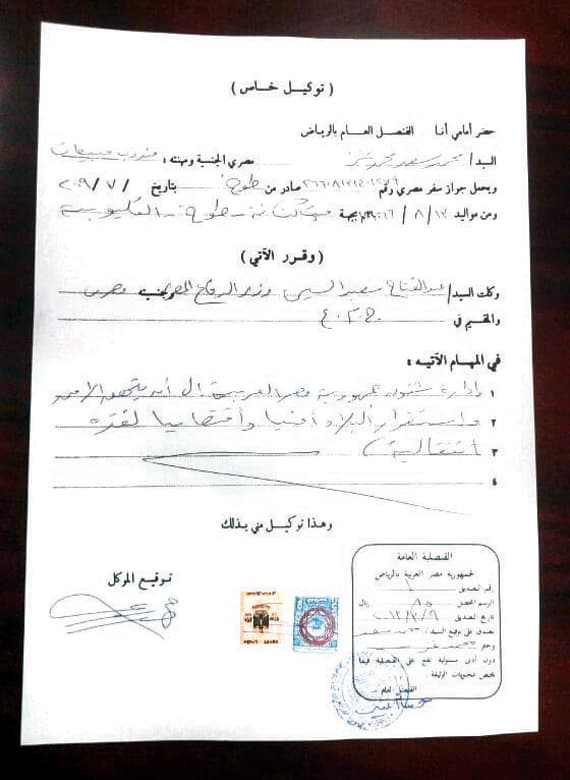 ( توكيل خاص )
حضر أمامي أنا القنصل العام بالرياض
السيد/ محمد سعد محمد مصري الجنسية ومهنته : مندوب مبيعات
ويحمل جواز سفر مصري رقم صادر من طوخ بتاريخ / ٧ / ٢٠٠٩
ومن مواليد ١٣ / ٨ / بجهة طوخ - القليوبية
( وقرر الآتي )
وكلت السيد/ عبد الفتاح سعيد السيسي وزير الدفاع المصري وجنسيته مصرى
والمقيم في ج.م.ع
في المهام الآتيه :
١ إدارة شئون جمهورية مصر العربية إلى أن يتم الأمن
٢ واستقرار البلاد أمنيا واقتصاديا لفترة
٣ انتقالية )
٤
وهذا توكيل مني بذلك
توقيع الموكل
القنصلية العامة
لجمهورية مصر العربية بالرياض
رقم التصديق
الرسم المحصل ٨٥ ريال
تاريخ التصديق
يصدق على توقيع السيد / محمد سعد
وختم
دون أدنى مسئولية تقع على القنصلية فيما
يختص بمحتويات الوثيقة .
القنصل العام